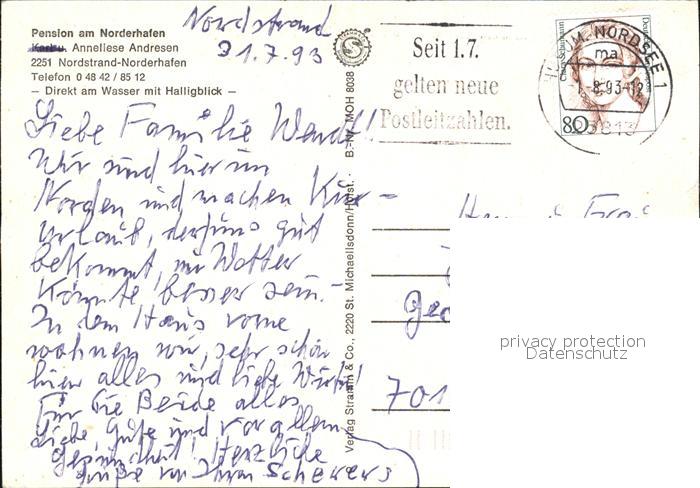 Pension am Norderhafen
Karlu. Anneliese Andresen
2251 Nordstrand-Norderhafen
Telefon 0 48 42 / 85 12
— Direkt am Wasser mit Halligblick —
Nordstrand
31.7.93
Seit 1.7.
gelten neue
Postleitzahlen.
HUSUM, NORDSEE 1
ma
-1.-8.93-12
25813
Clara Schumann
Deutsche Bundespost
80
Liebe Familie Wendt!
Wir sind hier im
Norden und machen Kur-
Urlaub, der uns gut
bekommt, nur Wetter
könnte besser sein.-
In dem Haus vorne
wohnen wir, sehr schön
hier alles und liebe Wirte!
Für Sie Beide alles
Liebe, Gute und vor allem
Gesundheit! Herzliche
Grüße von Ihren Scherers
Verlag Stramm & Co., 2220 St. Michaelisdonn/Holst. B.-Nr. MOH 8038
701
privacy protection
Datenschutz